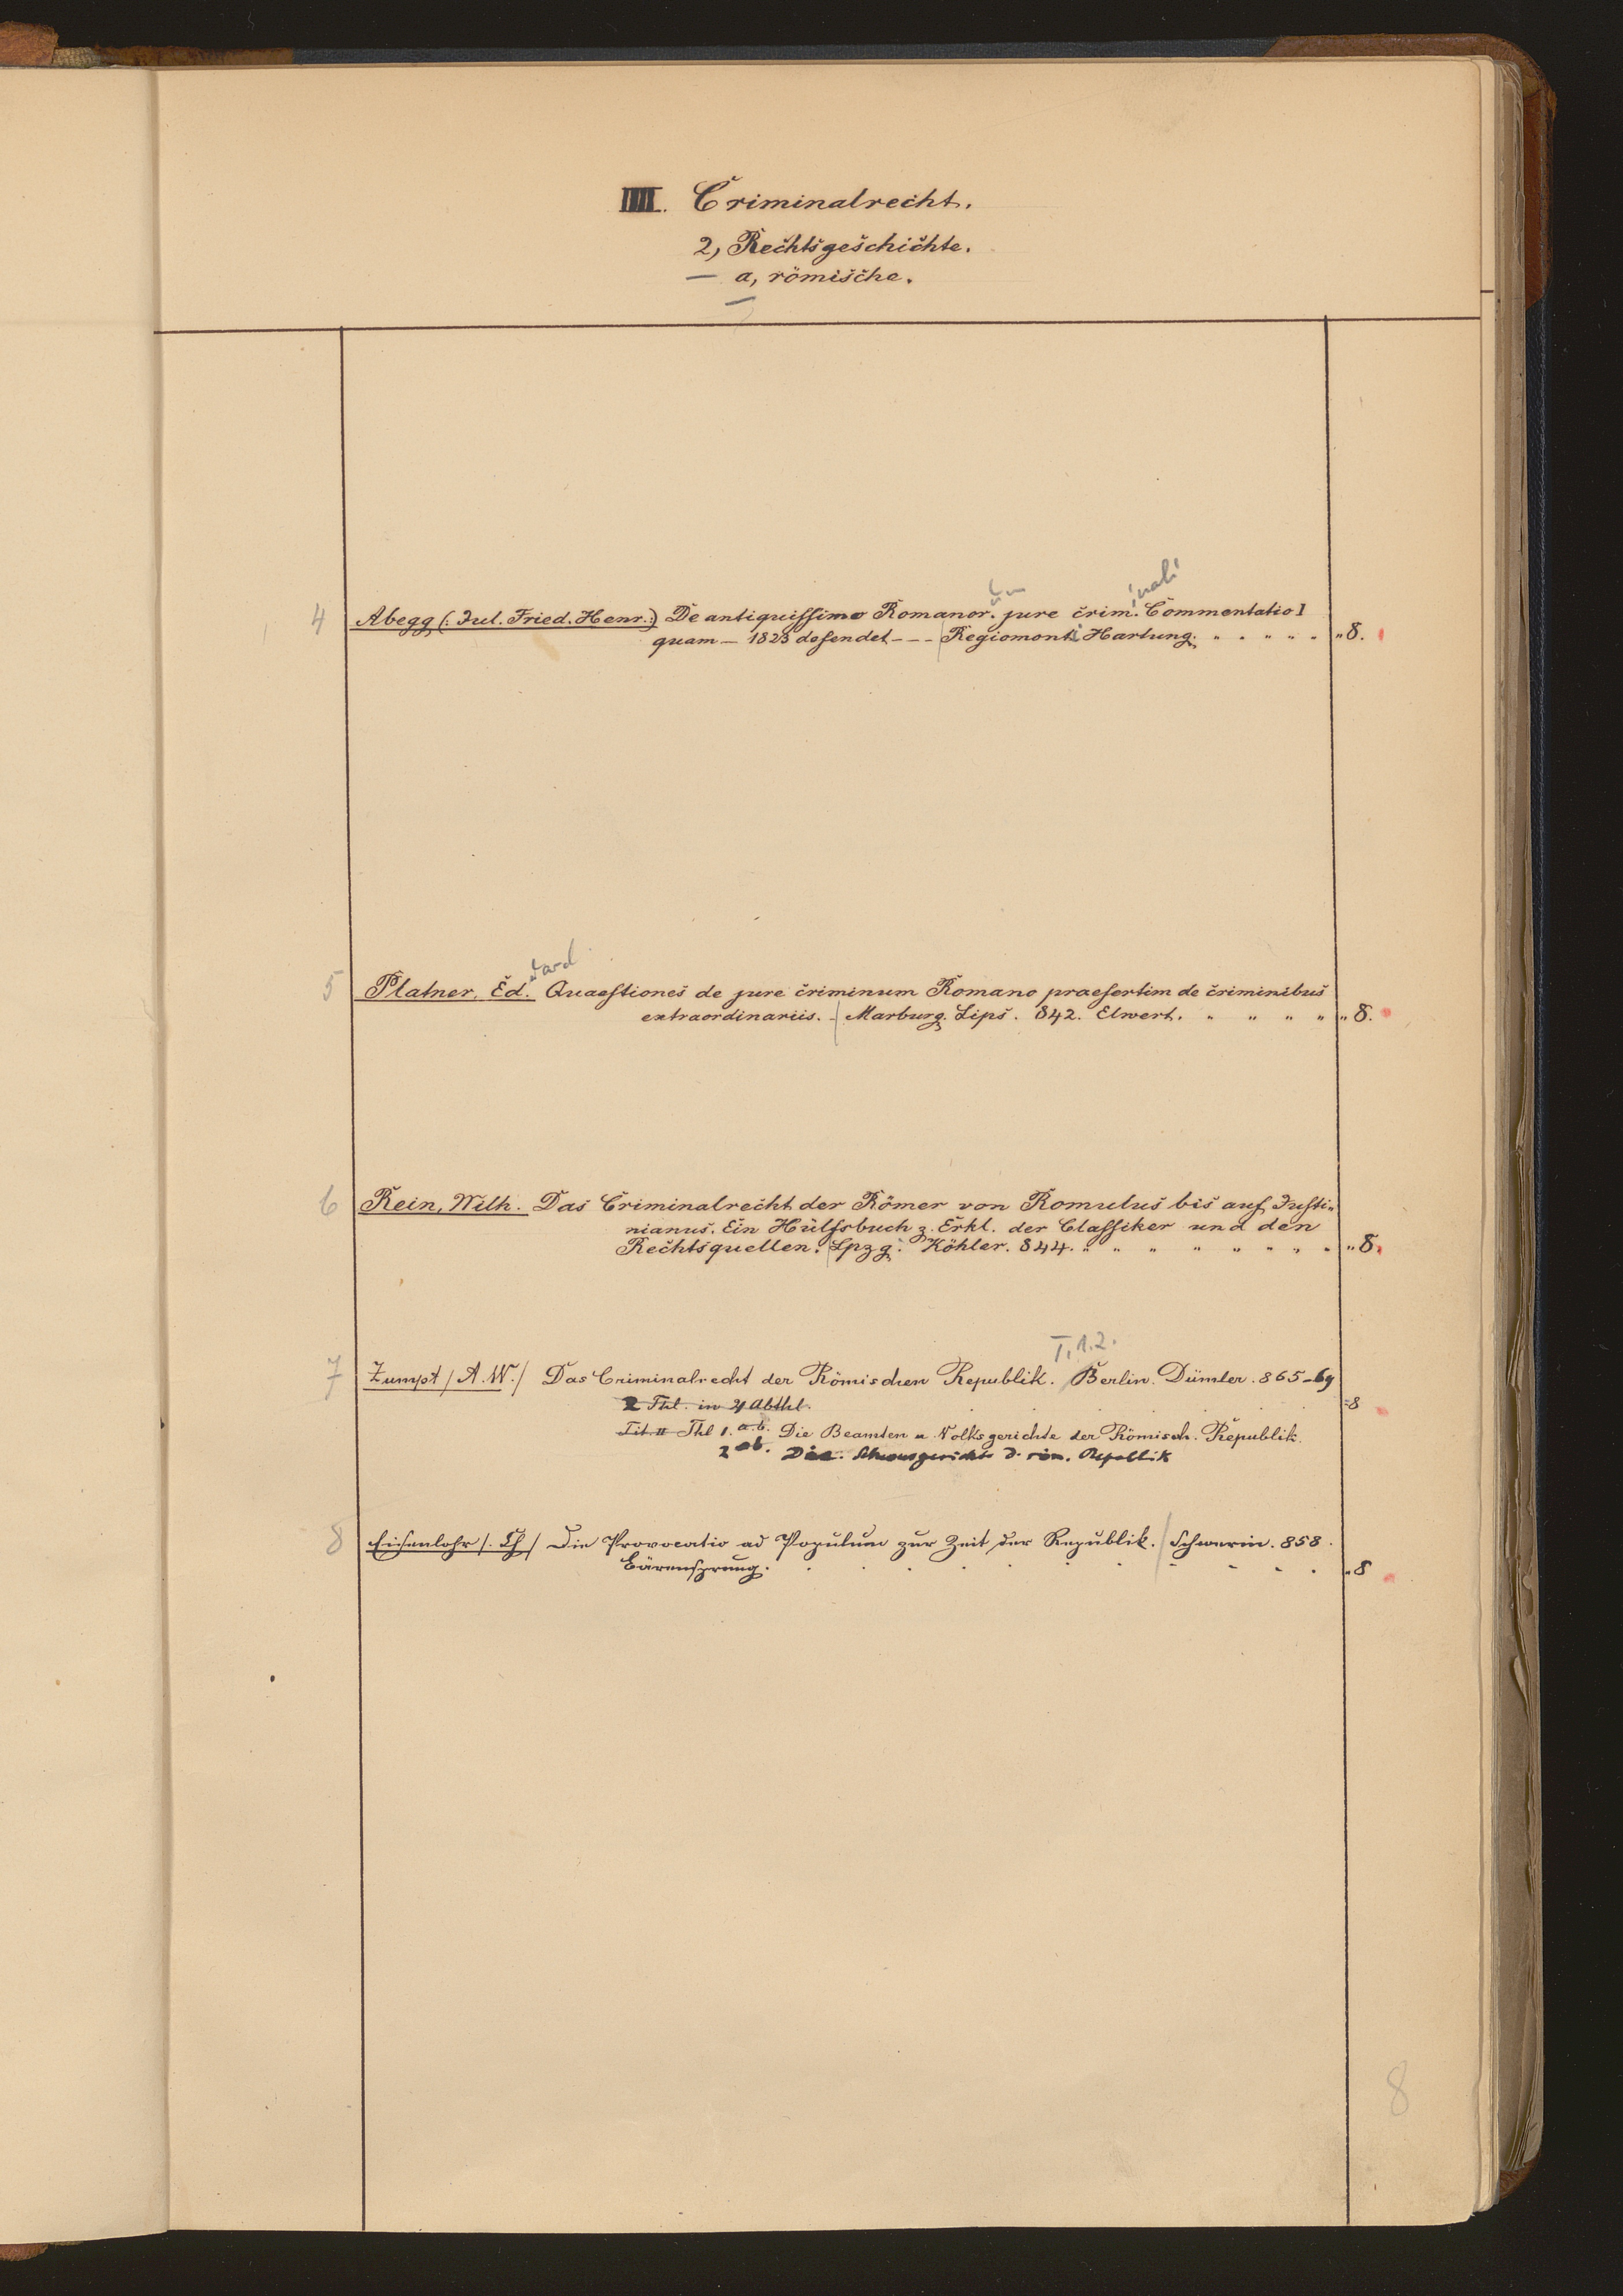 IIII. Criminalrecht.
2, Rechtsgeschichte.
— a, römische.
um inali
4 Abegg (: Jul. Fried. Henr.:) De antiquissimo Romanor. jure crim. Commentatio I
quam — 1823 defendet - - - Regiomonti Hartung. „ „ „ „ „ „ 8.
uard
5 Platner, Ed. Quaestiones de jure criminum Romano praesertim de criminibus
extraordinariis. - Marburg. Lips. 842. Elwert. „ „ „ „ „ 8.
6 Rein, Wilh. Das Criminalrecht der Römer von Romulus bis auf Justi-
nianus. Ein Hülfsbuch z. Erkl. der Classiker und den
Rechtsquellen. Lpzg. Köhler. 844. „ „ „ „ „ „ „ „ „ 8.
T. 1.2.
7 Zumpt / A. W. / Das Criminalrecht der Römischen Republik. Berlin. Dümler. 865-69
2 Thl. in 4 Abthl. 8
Tit. II Thl 1. a.b. Die Beamten u Volksgerichte der Römisch. Republik.
2 ab. Die Schwurgerichte d. röm. Republik
8 Eisenlohr /. Th / Die Provocatio ad Populum zur Zeit der Republik. / Schwerin. 858.
Bärensprung. . . . . . . . . . „ 8
8